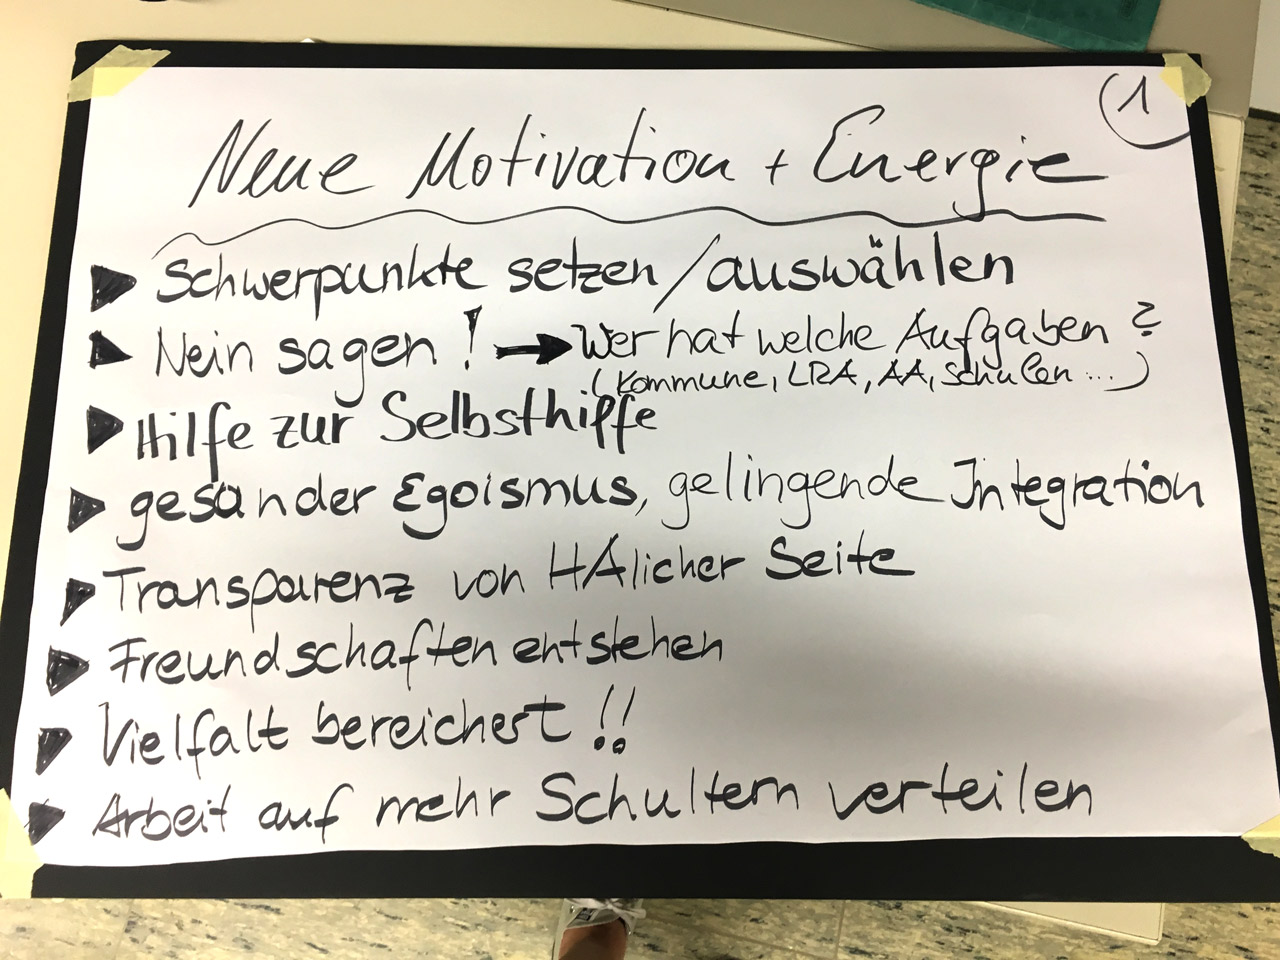 1
Neue Motivation + Energie
Schwerpunkte setzen/auswählen
Nein sagen! → Wer hat welche Aufgaben?
(Kommune, LRA, AA, Schulen...)
Hilfe zur Selbsthilfe
gesunder Egoismus, gelingende Integration
Transparenz von HAlicher Seite
Freundschaften entstehen
Vielfalt bereichert!!
Arbeit auf mehr Schultern verteilen